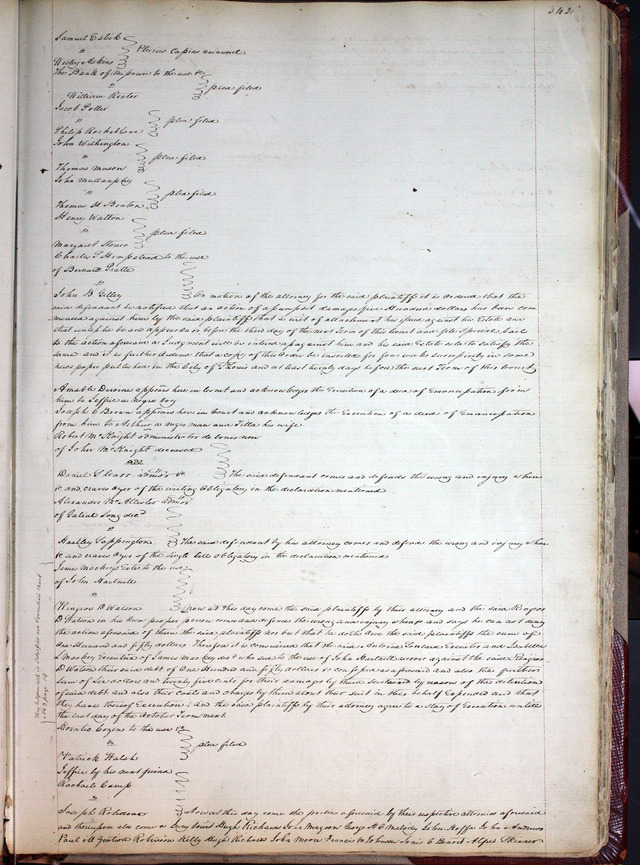 342
Samuel Estick
"
Pluries Capias awarded
Wesley Askins
The Bank of Missouri to the use &c
" plea filed
William Rector
Jacob Potter
" plea filed
Philip Rocheblave
John Withington
" plea filed
Thomas Mason
John Mullanphy
" plea filed
Thomas H Benton
Henry Walton
" plea filed
Margaret Stoner
Charles S Hempstead to the use
of Bernard Pratte
"
John B Gilley On motion of the attorney for the said plaintiff it is ordered that the
said defendant be notified that an action of assumpsit damages five Hundred dollars has been com
menced against him by the said plaintiff that a writ of attachment has issued against his Estate and
that unless he be and appear on or before the third day of the next Term of this Court and file Special bail
to the action aforesaid a Judgment will be entered against him and his said Estate sold to satisfy the
same and it is further ordered that a copy of this order be inserted for four weeks successively in some
news paper published in the City of St Louis and at least twenty days before the next Term of this Court
Amable Duvine appears here in Court and acknowledges the Execution of a deed of Emancipation from
him to Joffrie a Negro boy
Joseph C Brown appears here in Court and acknowledges the Execution of a deed of Emancipation
from him to a negro man and Zilla his wife
Robert McKnight administrator de bonis non
of John McKnight deceased
Daniel admor &c The said defendant comes and defends the wrong and injury when
&c and craves oyer of the writing Obligatory in the declaration mentioned
Alexander McAllister admor
of Gabriel Long decd
"
Hartley Sappington The said defendant by his attorney comes and defends the wrong and injury when
&c and craves oyer of the single bill obligatory in the declaration mentioned
James Mackeys Exors to the use
of John Hartnett
"
Wingros D Watson Now at this day come the said plaintiffs by their attorney and the said
D Watson in his own proper person comes and defends the wrong and injury when &c and says he can not deny
the action aforesaid of them the said plaintiffs nor but that he doth owe the said plaintiffs the sum of
One Hundred and fifty dollars Therefore it is considered that the said Antoine Soulard Executor and
L Mackey Executrix of James Mackey decd who sue to the use of John Hartnett recover against the said
D Watson their said debt of One Hundred and fifty dollars so confessed as aforesaid and also the further
sum of Six dollars and twenty five cents for their damages by them sustained by reason of the detention
of said debt and also their costs and charges by them about their suit in this behalf Expended and that
they have thereof Execution and the said plaintiffs by their attorney agree to a stay of Execution untill
the last day of the October Term next
Horatio Cozens to the use &c
" plea filed
Patrick Walsh
Joffrie by his next friend
Rachael Camp
"
Joseph Robidoux Now at this day come the parties aforesaid by their respective attornies aforesaid
and thereupon also come a Jury towit Hugh Richards John Mason George H C Melody John Hoffer John Andrews
Paul M Gratiot Robinson Kelly Hugh Richards John Moore Francis Louis C Benoit Alfred Skinner